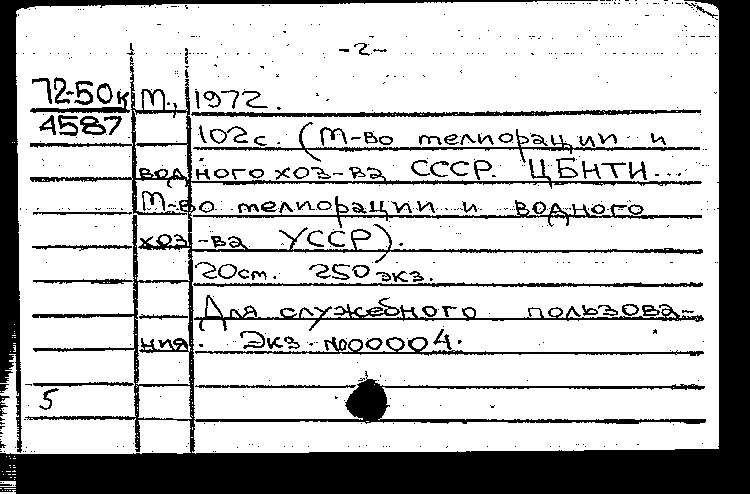 -2-
72-50к М., 1972.
4587 102 с. (М-во мелиорации и
водного хоз-ва СССР. ЦБНТИ...
М-во мелиорации и водного
хоз-ва УССР).
20см. 250 экз.
Для служебного пользова-
ния. Экз. №00004.
5